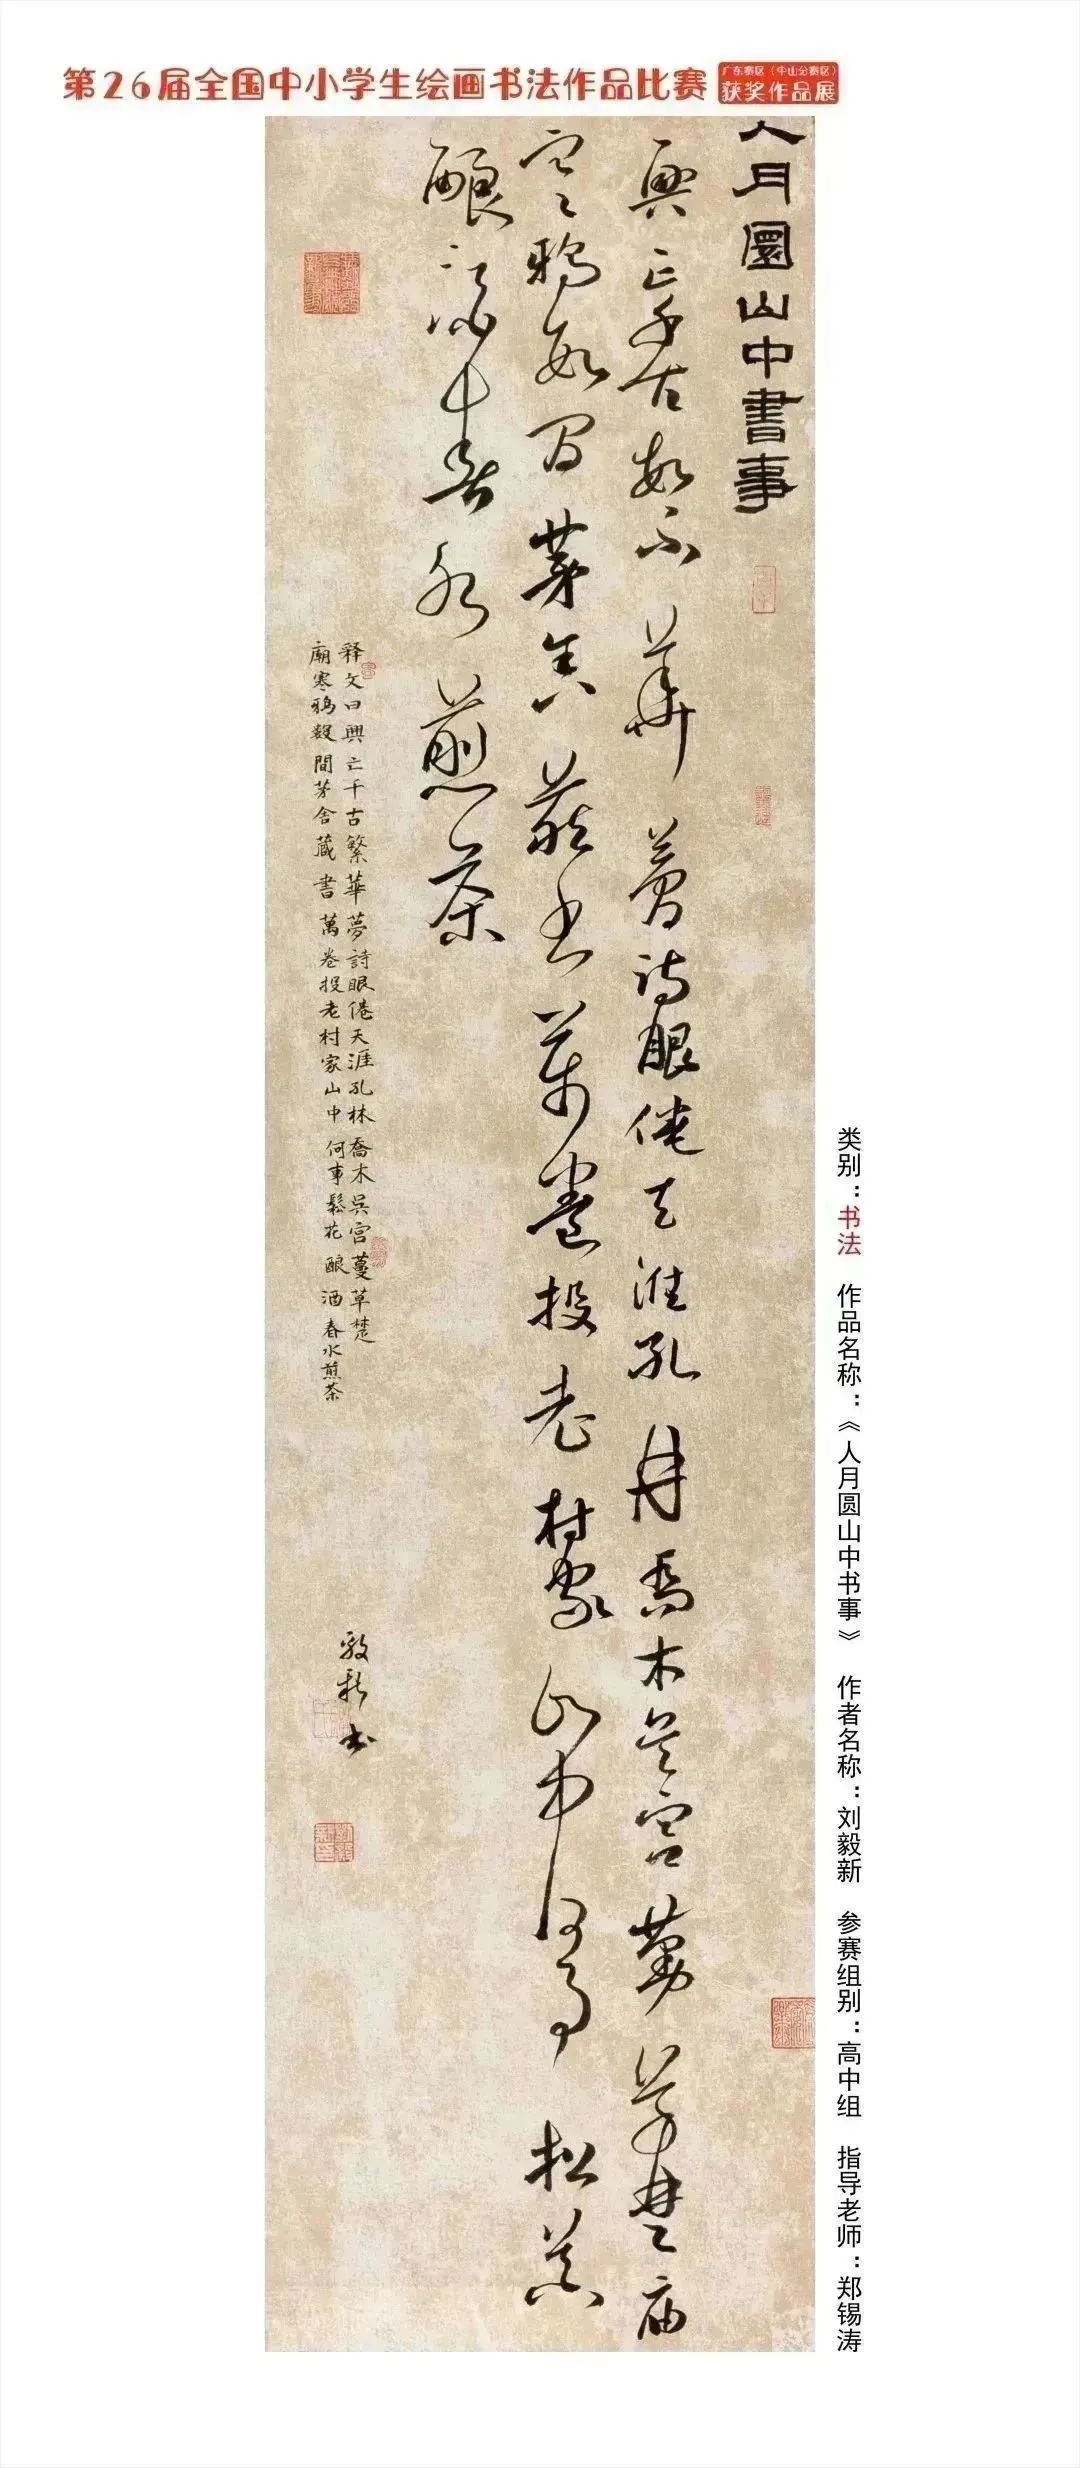 第26届全国中小学生绘画书法作品比赛
广东赛区（中山分赛区）
获奖作品展
人月圓山中書事
興亡千古繁華夢詩眼倦天涯孔林喬木吳宮蔓草楚廟
寒鴉數間茅舍藏書萬卷投老村家山中何事松花
釀酒春水煎茶
释文曰興亡千古繁華夢詩眼倦天涯孔林喬木吳宮蔓草楚
廟寒鴉數間茅舍藏書萬卷投老村家山中何事鬆花釀酒春水煎茶
毅新书
类别：书法 作品名称：《人月圆山中书事》 作者名称：刘毅新 参赛组别：高中组 指导老师：郑锡涛